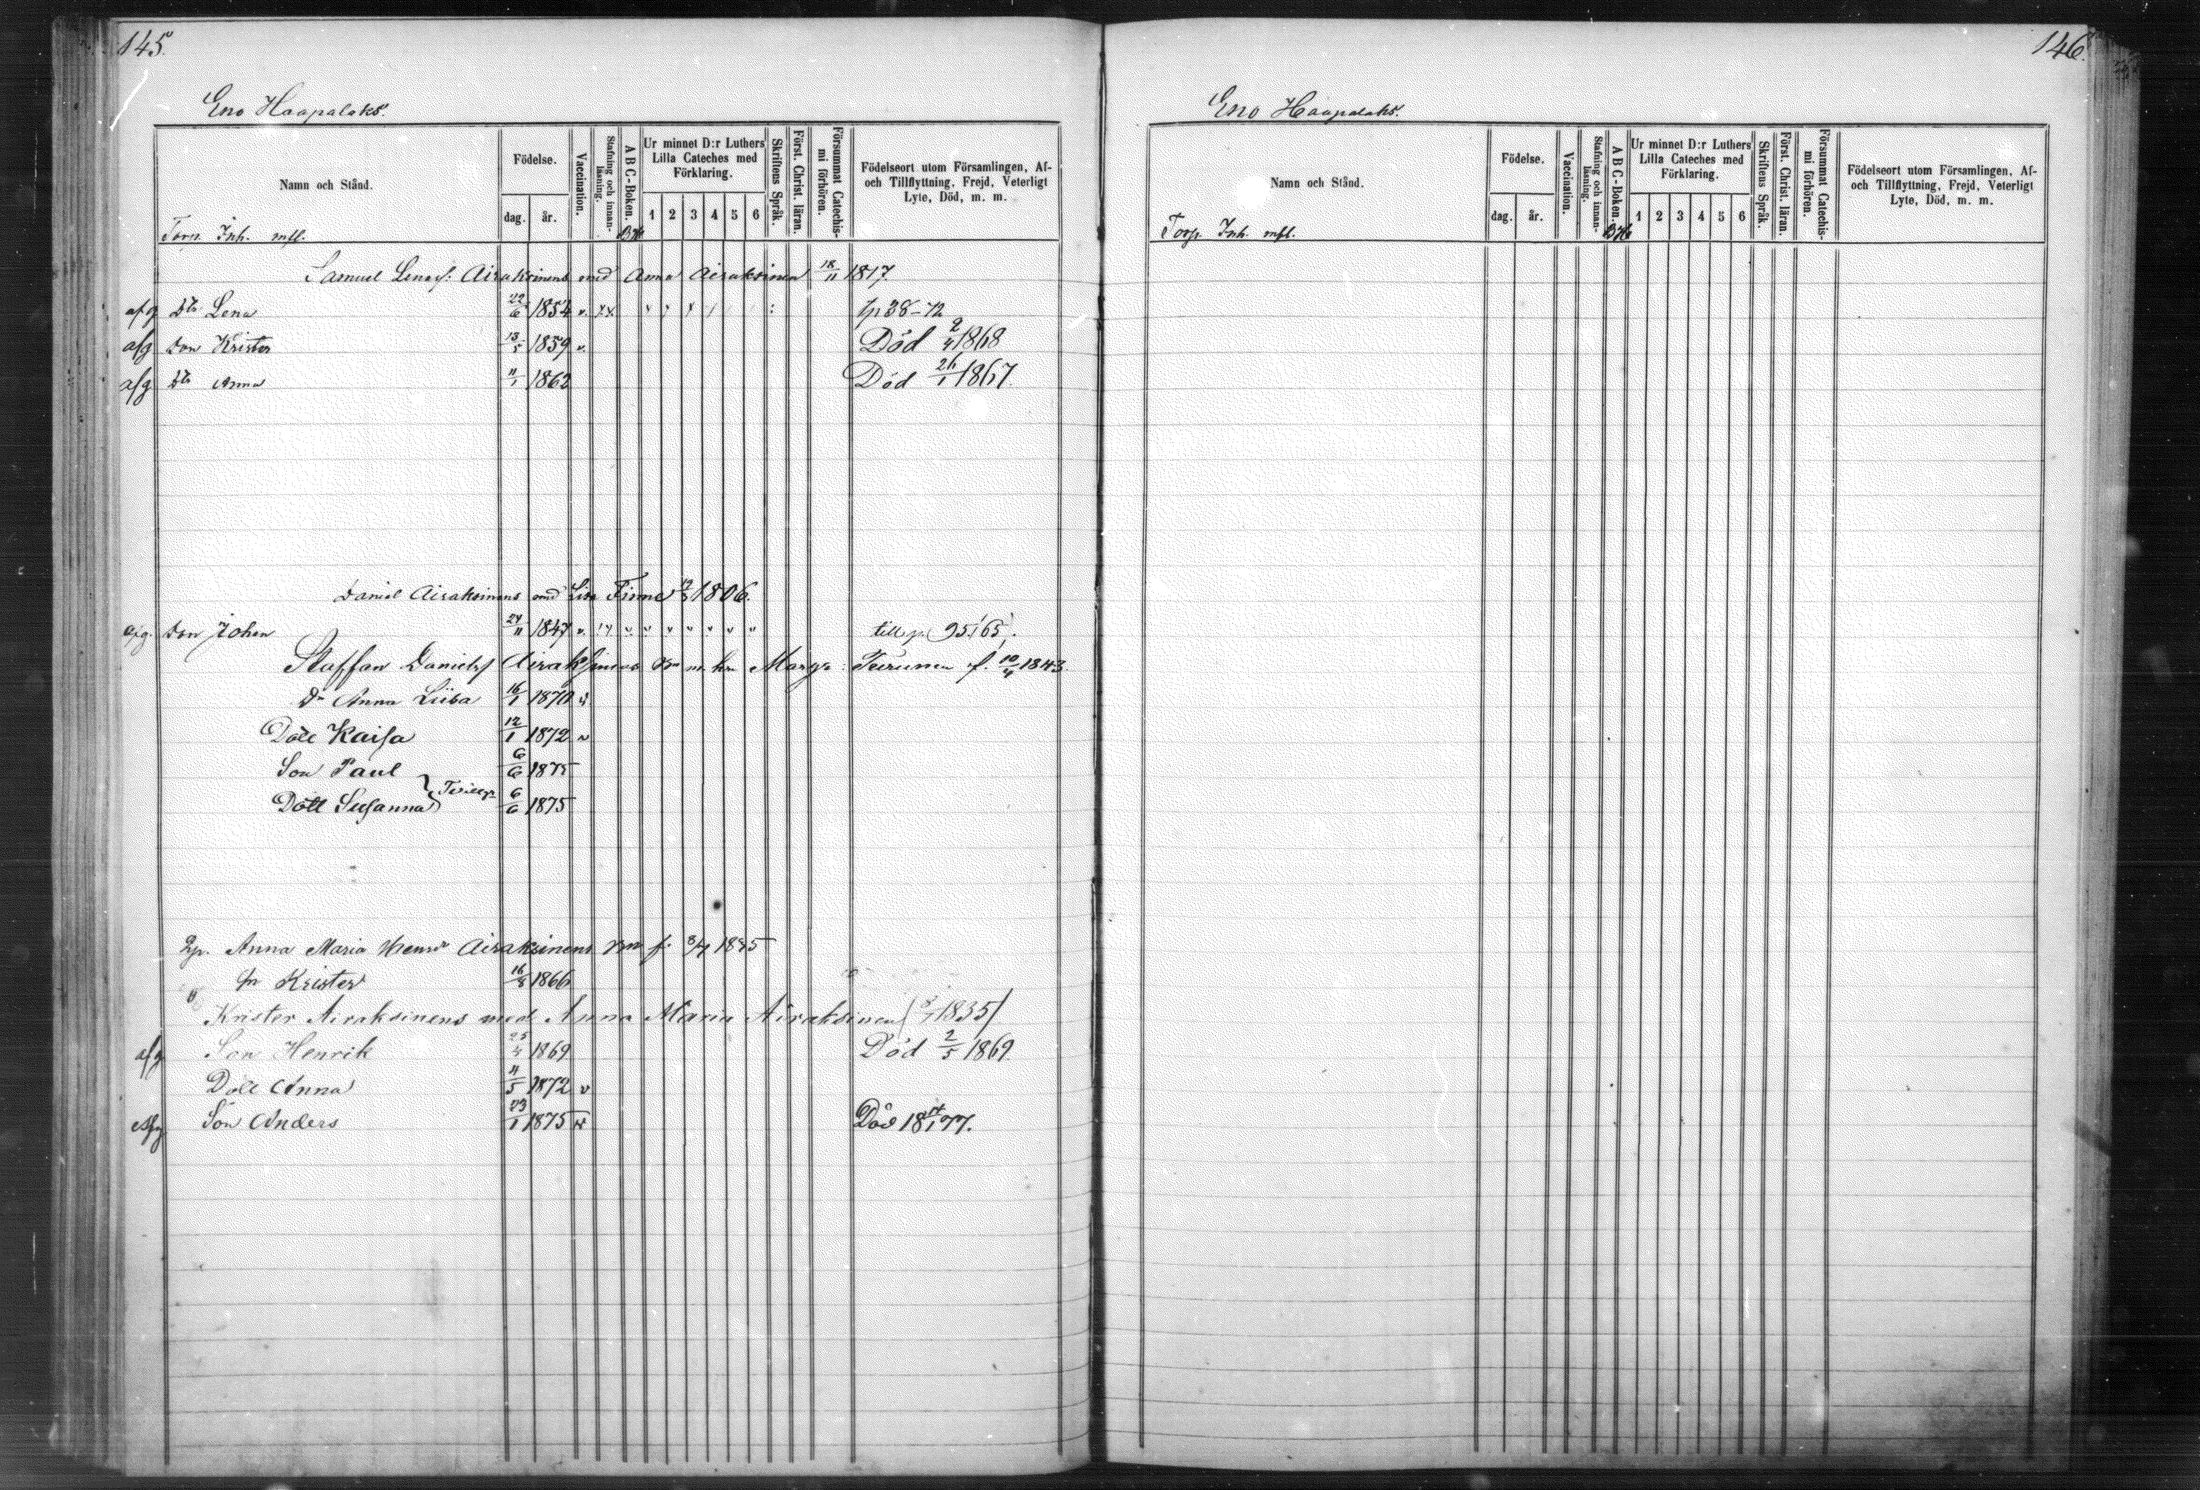 145.
Eno Haapalaks.
Namn och Stånd.
Födelse.
dag.
år.
Vaccination.
Stafning och innanläsning.
A B C-Boken.
Ur minnet D:r Luthers Lilla Cateches med Förklaring.
1 2 3 4 5 6
Skriftens Språk.
Först. Christ. läran.
Försummat Catechismi förhören.
Födelseort utom Församlingen, Af- och Tillflyttning, Frejd, Veterligt Lyte, Död, m. m.
Torp. Inh. mfl.
Samuel Airaksinens med Anna Airaksinen 18/11 1817
afg Dtr Lena 22/6 1854 v. p 38-72
afg Son Krister 13/5 1859 v. Död 2/4 1868
afg Dtr Anna 11/1 1862 Död 26/1 1867.
Daniel Airaksinens med Lisa 1806.
afg. Son Johan 24/11 1847 v. till p. 95, 65.
Staffan Daniels Airaksinens m. hu Marg: f. 10/4 1843.
Dr Anna Liisa 16/1 1870 v.
Dott Kaisa 12/1 1872 v
Son Paul 6/6 1875
Dott Susanna 6/6 1875
Anna Maria Airaksinens f. 3/7 1835
Krister 16/8 1866
Krister Airaksinens med Anna Maria Airaksinen 1835)
afg Son Henrik 25/4 1869 Död 2/5 1869.
Dott Anna 11/5 1872 v
afg Son Anders 23/1 1875 v Död 18 77.
146.
Eno Haapalaks.
Namn och Stånd.
Födelse.
dag.
år.
Vaccination.
Stafning och innanläsning.
A B C-Boken.
Ur minnet D:r Luthers Lilla Cateches med Förklaring.
1 2 3 4 5 6
Skriftens Språk.
Först. Christ. läran.
Försummat Catechismi förhören.
Födelseort utom Församlingen, Af- och Tillflyttning, Frejd, Veterligt Lyte, Död, m. m.
Torp. Inh. mfl.